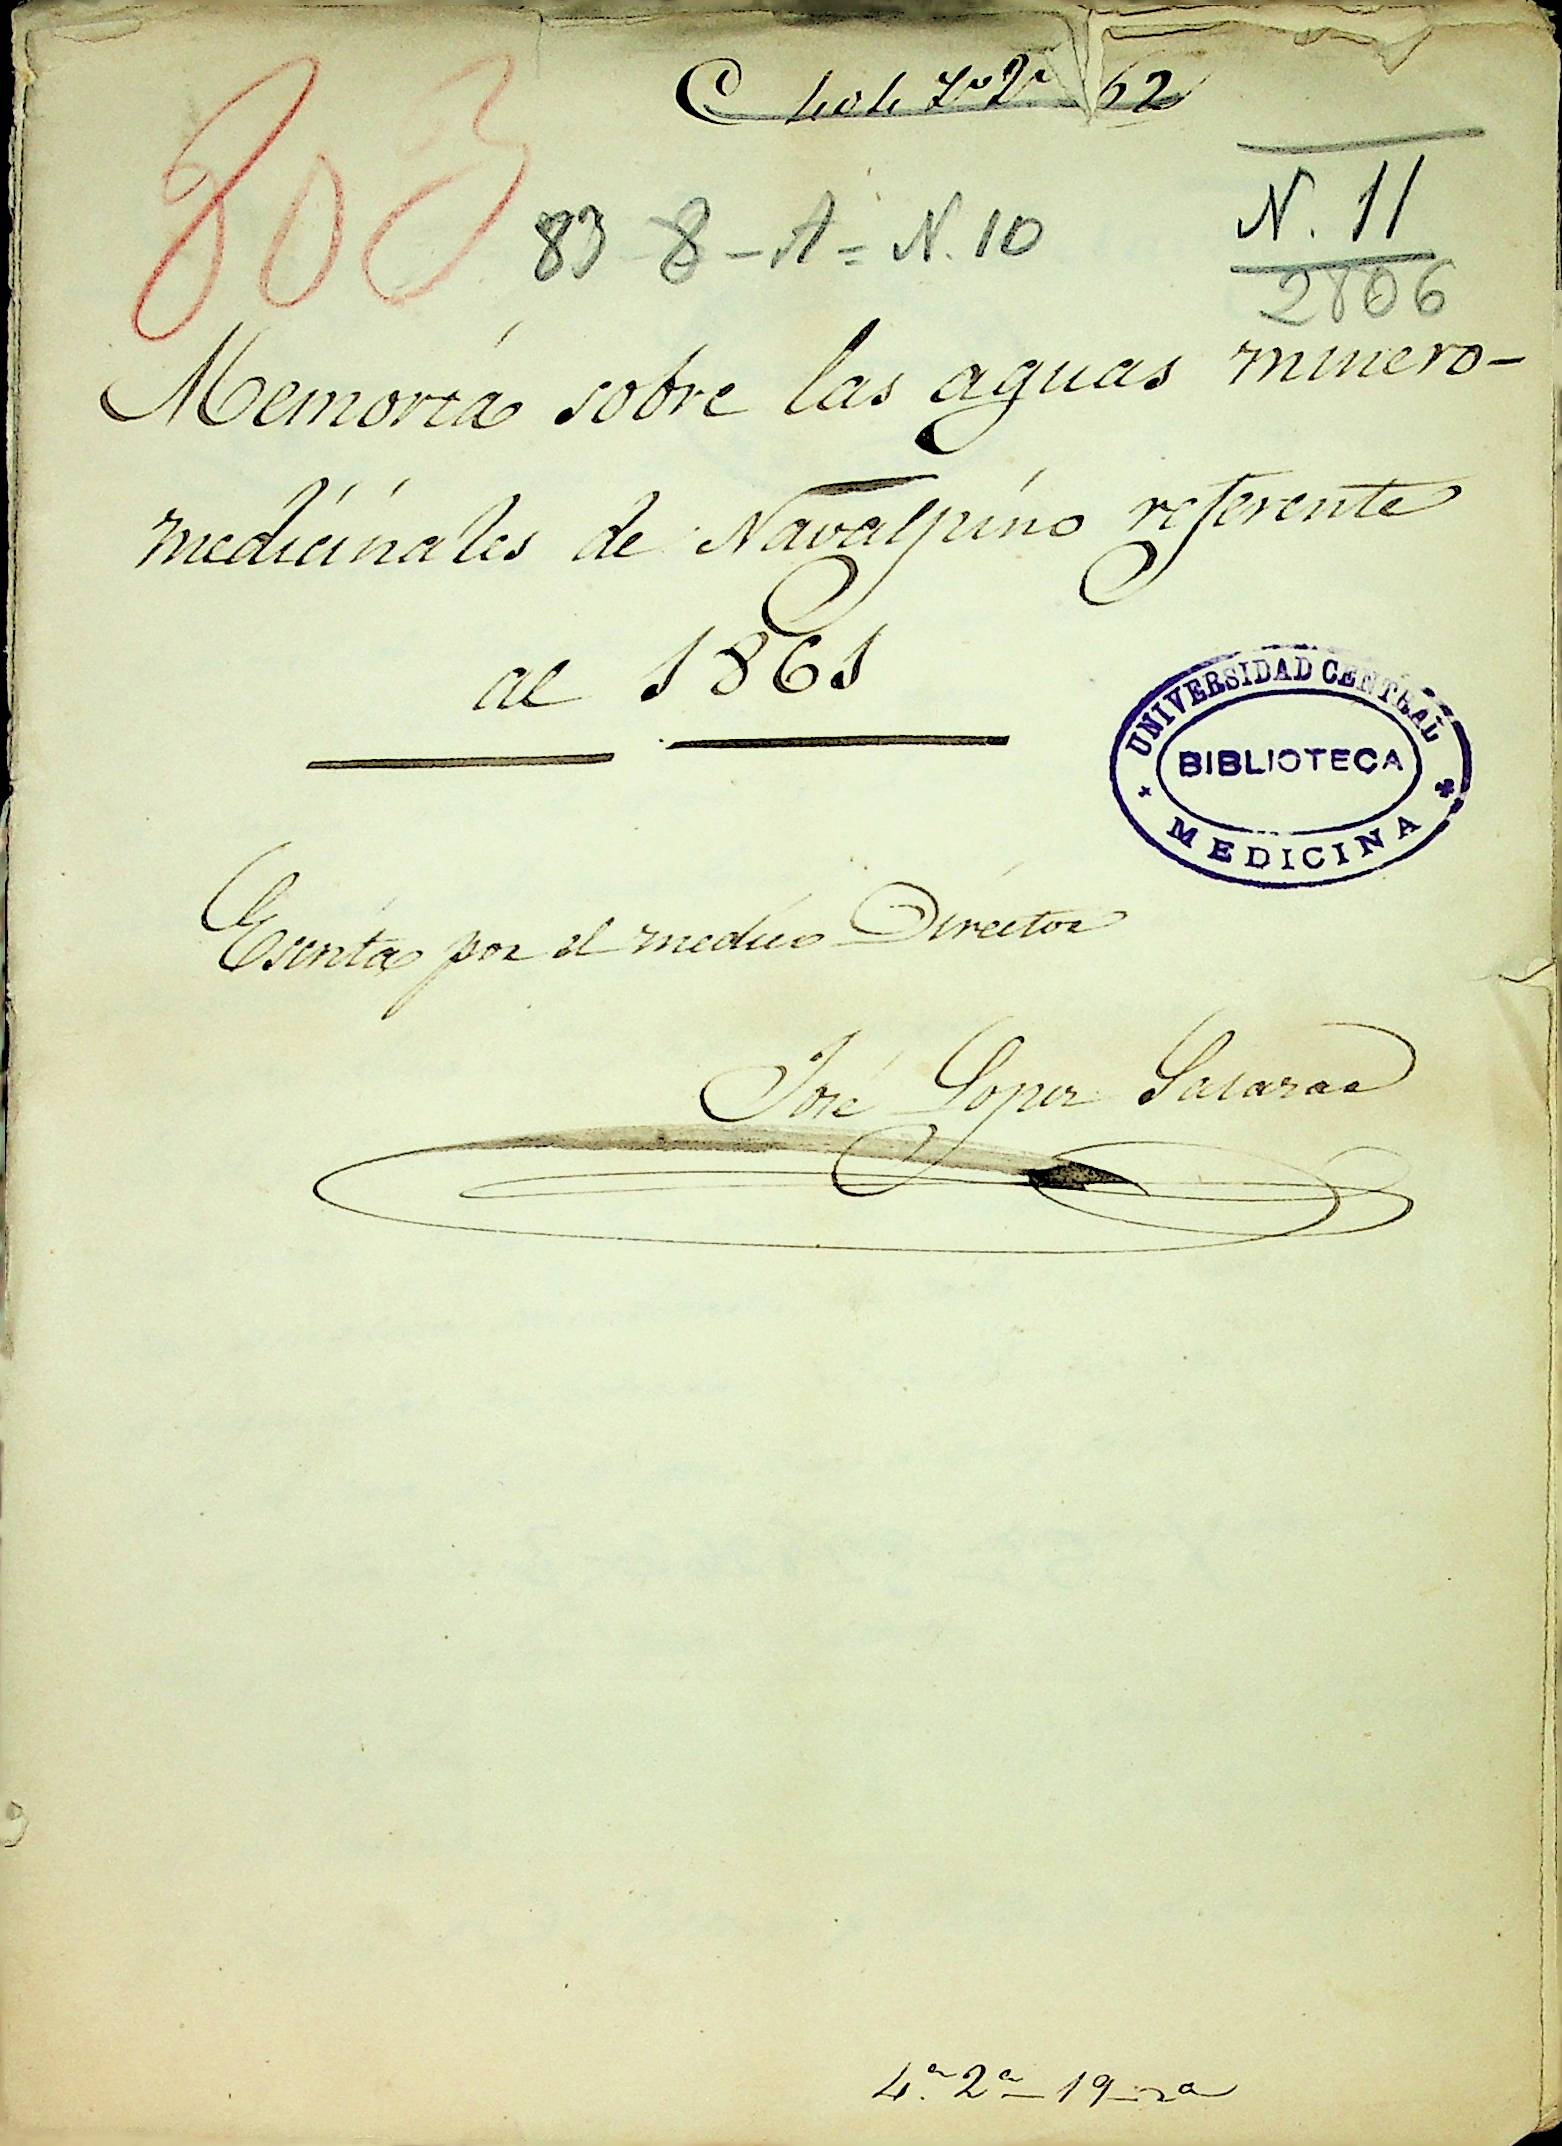 62
803
83-8-A=N.10
N. 11
2806
Memoria sobre las aguas minero-
medicinales de Navalpino referente
al 1861
UNIVERSIDAD CENTRAL
BIBLIOTECA
MEDICINA
Escrita por el medico Director
José Lopez
4.ª 2ª 19